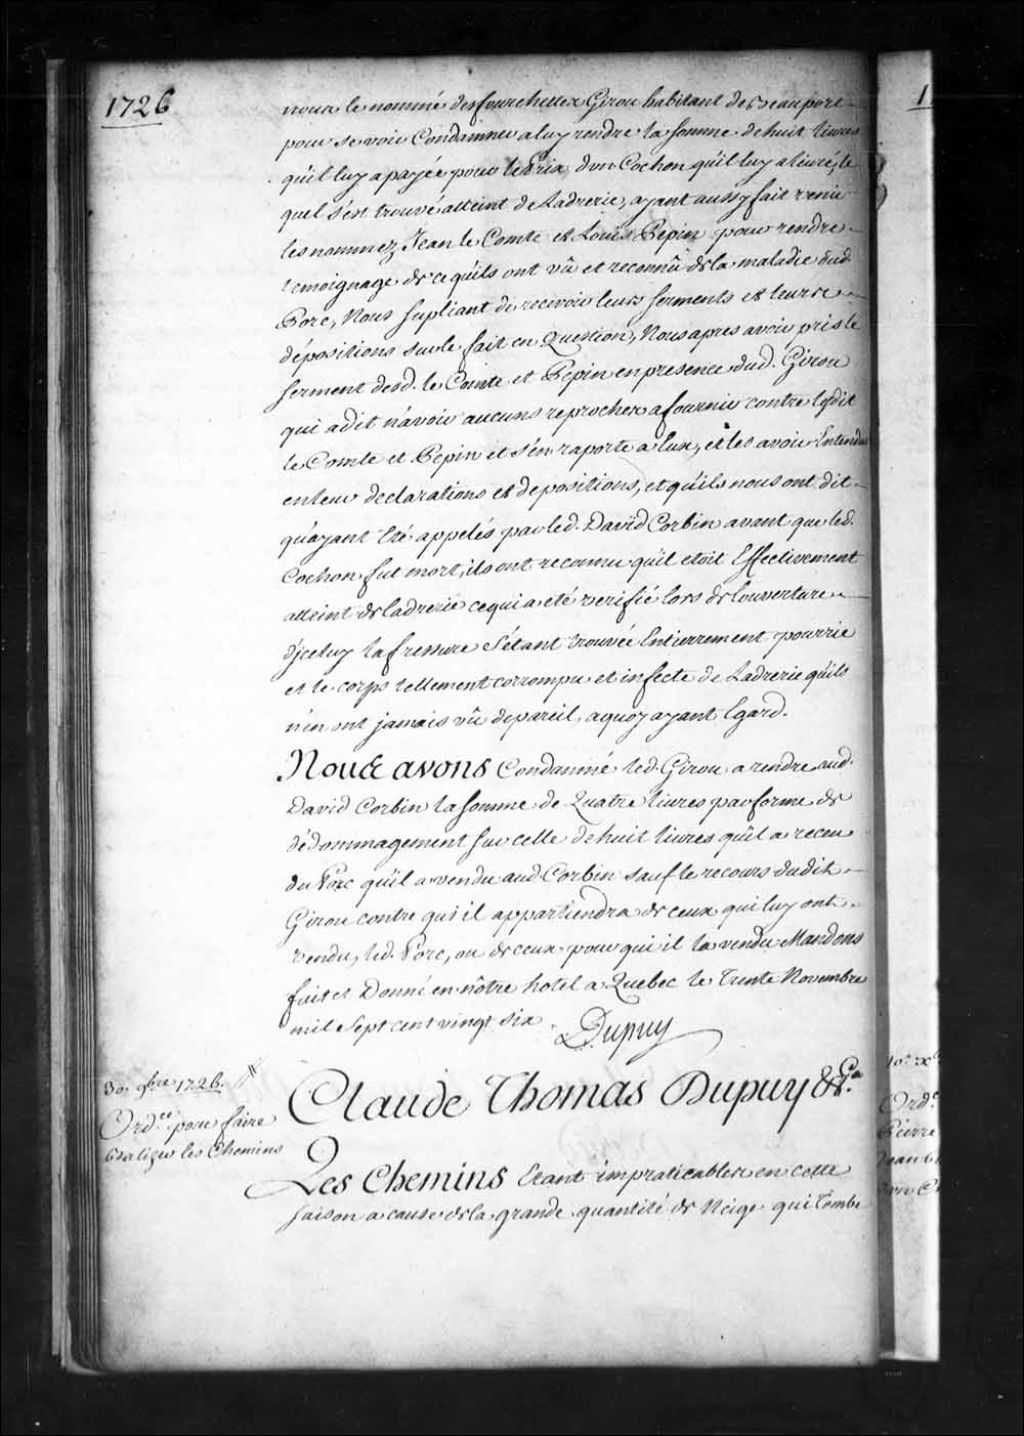 1726
nous le nommé desfourchettes Girou habitant de Beauport
pour se voir Condamner a luy rendre la somme de huit livres
qu'il luy a payée pour le Prix d'un Cochon qu'il luy a livré, le
quel s'est trouvé atteint de Ladrerie, ayant aussy fait venir
les nommez Jean le Comte et Louis Pepin pour rendre
temoignage de ce qu'ils ont vû et reconnû de la maladie dud.
Porc, Nous supliant de recevoir leurs serments et leurs
dépositions sur le fait en Question, Nous apres avoir pris le
serment desd. le Comte et Pepin en presence dud. Girou
qui a dit n'avoir aucuns reproches a fournir contre lesdit
le Comte et Pepin et s'en raporte a Eux, et les avoir Entendus
en leur declarations et depositions, et qu'ils nous ont dit
qu'ayant Eté appelés par led. David Corbin avant que led.
Cochon fut mort, ils ont reconnu qu'il etoit Effectivement
atteint de ladrerie ce qui a eté verifié lors de l'ouverture
d'jceluy la fressure s'étant trouvée Entierement pourrie
et le corps tellement corrompu et infecte de Ladrerie qu'ils
n'en ont jamais vû de pareil, a quoy ayant Egard.
Nous avons Condamné led. Girou a rendre aud.
David Corbin la somme de Quatre livres par forme de
dédommagement sur celle de huit livres qu'il a receu
du Porc qu'il a vendu aud. Corbin sauf le recours dudit
Girou contre qui il appartiendra de ceux qui luy ont
vendu led. Porc, ou de ceux pour qui il la vendu Mandons
fait et Donné en nôtre hotel a Quebec le Trente Novembre
mil sept cent vingt six. Dupuy
30. 9bre 1726.
Ordce pour faire
balizer les Chemins
Claude Thomas Dupuy &ca
Les Chemins Etant impraticables en cette
saison a cause de la grande quantité de Neige qui Tombe
1
10e x
Ord.
Pierre
Jean